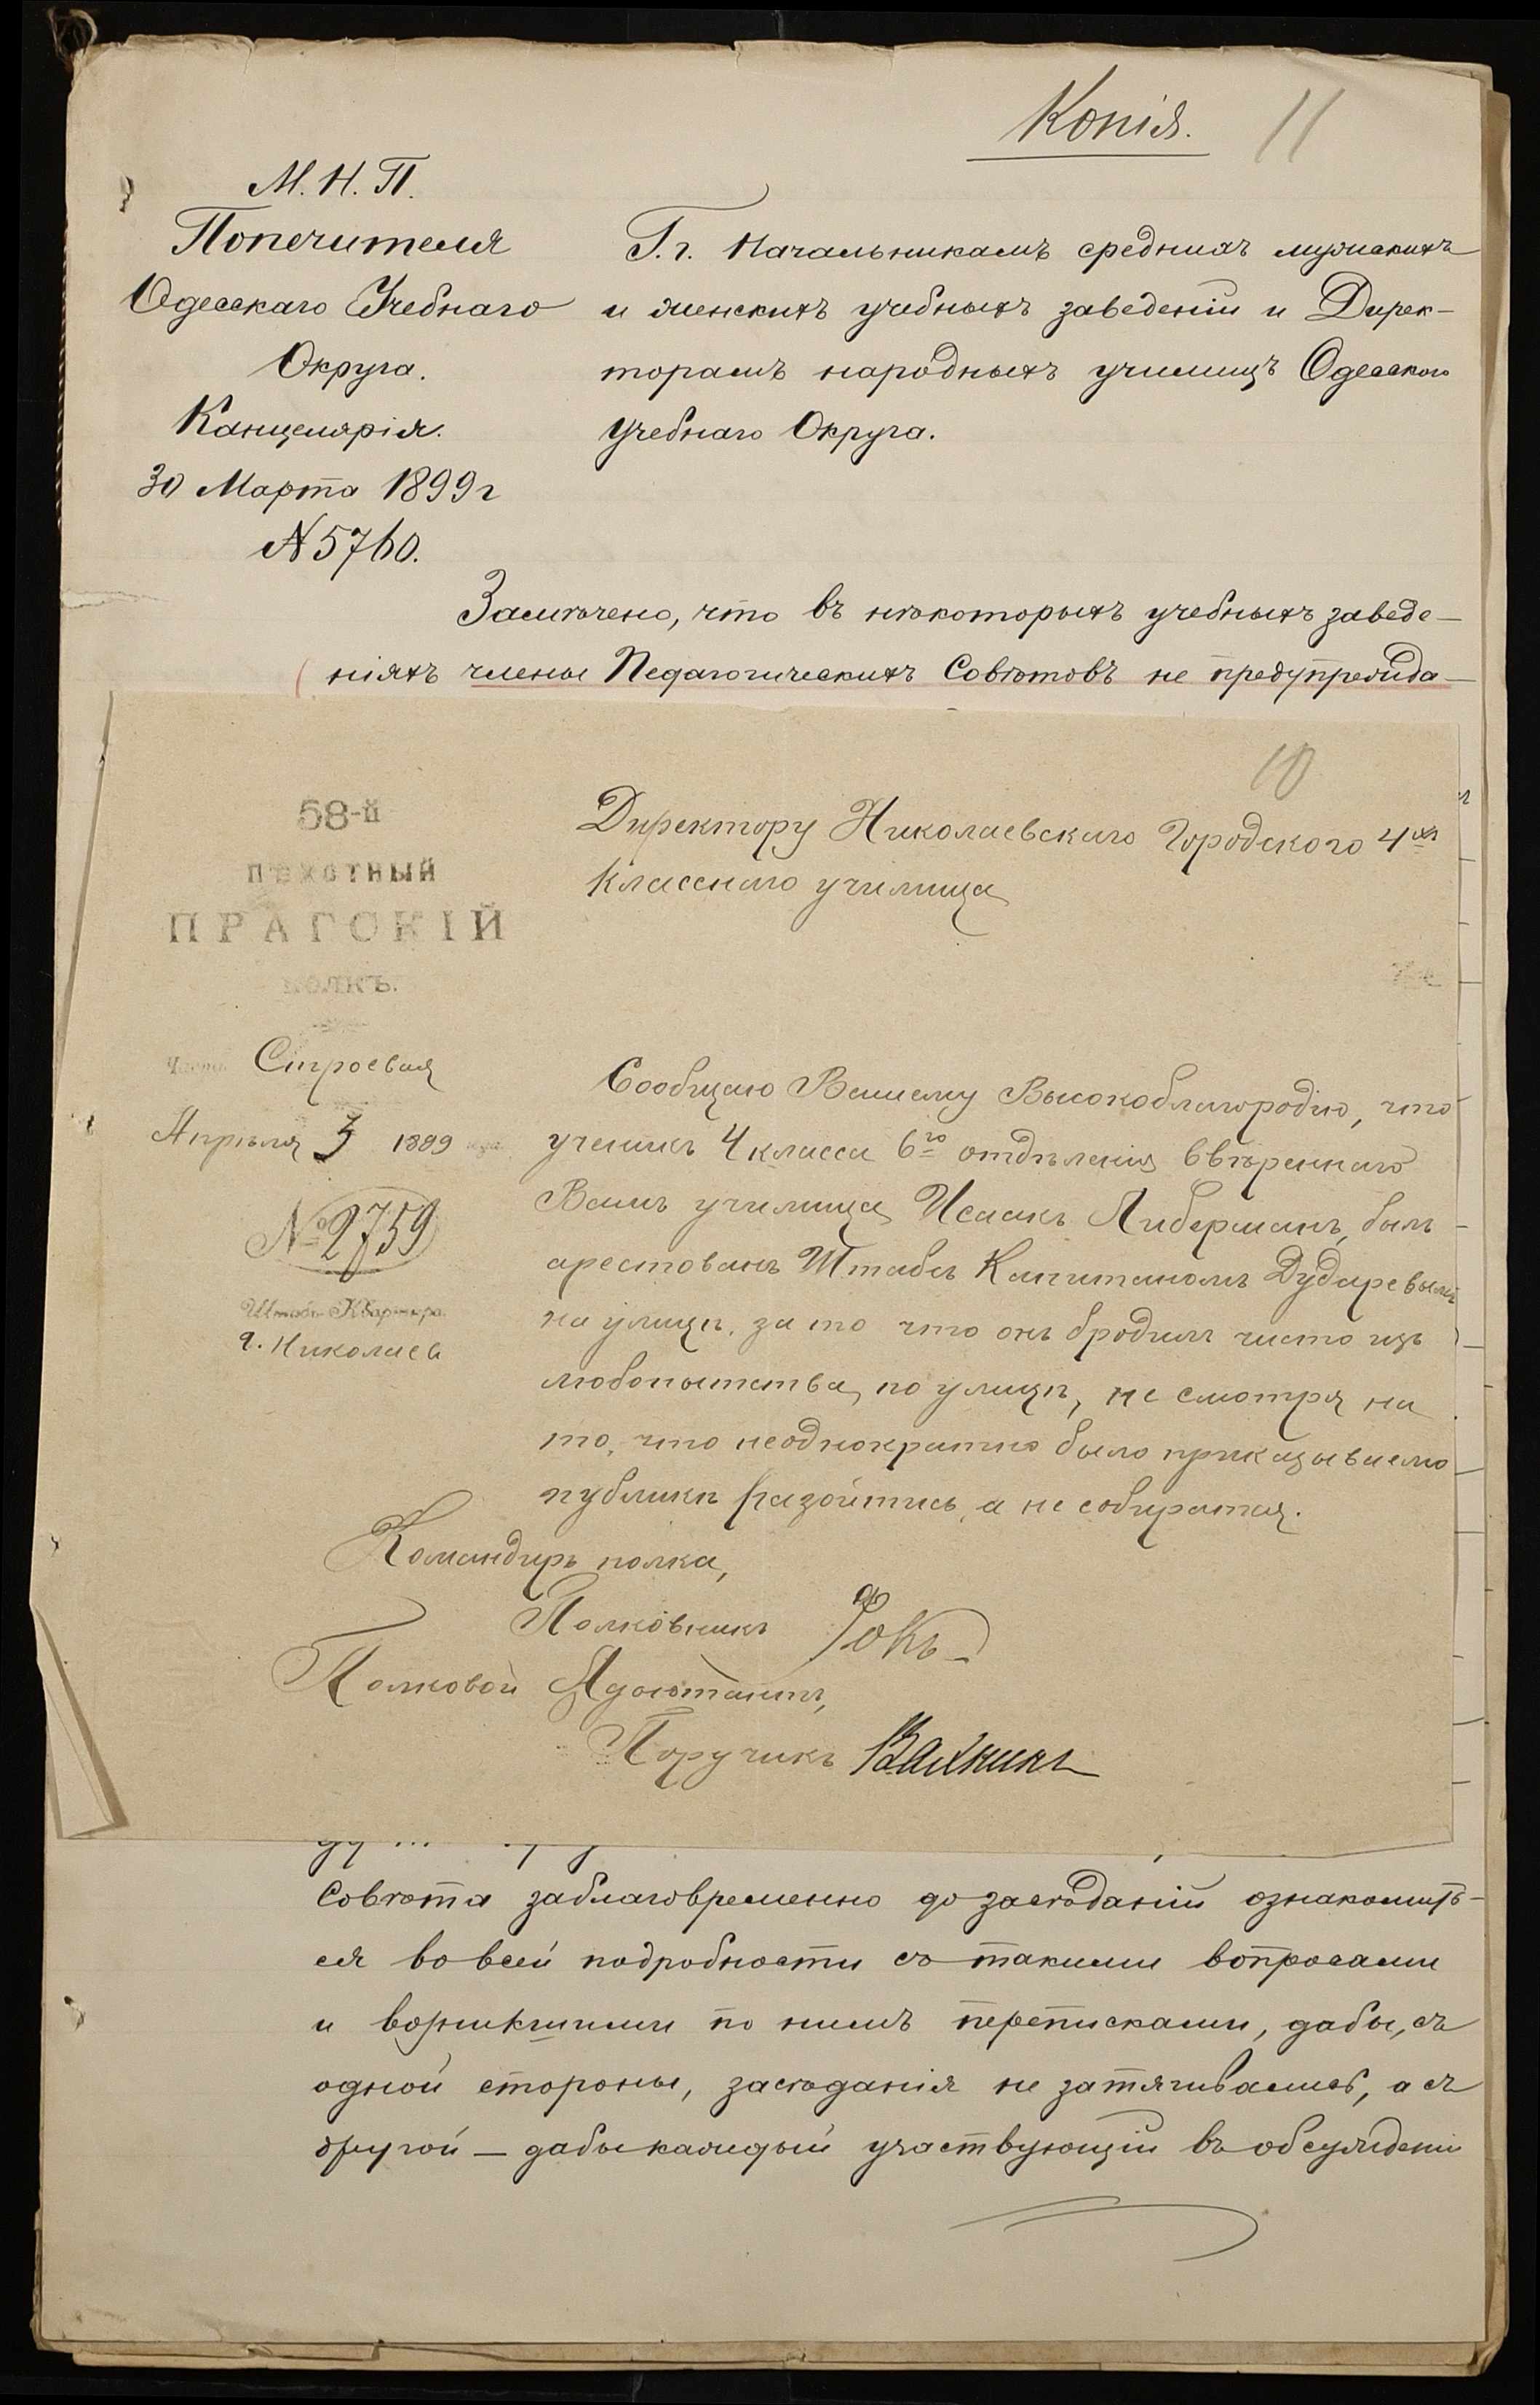 Копія. 11
М. Н. П.
Попечителя
Одесскаго Учебнаго
Округа.
Канцелярія.
30 Марта 1899 г
№ 5760.
Г. г. Начальникамъ среднихъ мужскихъ
и женскихъ учебныхъ заведеній и Дирек-
торамъ народныхъ училищъ Одесскаго
Учебнаго Округа.
Замѣчено, что въ нѣкоторыхъ учебныхъ заведе-
ніяхъ члены Педагогическихъ Совѣтовъ не предупрежда-
10
58-й
ПѢХОТНЫЙ
ПРАГСКІЙ
ПОЛКЪ.
Часть Строевая
Апрѣля 3 1899 года
№ 2759
Штабъ-Квартира.
г. Николаевъ
Директору Николаевскаго Городского 4хъ
класснаго училища
Сообщаю Вашему Высокоблагородію, что
ученикъ 4 класса 6го отдѣленія ввѣреннаго
Вамъ училища Исаакъ Либерманъ, былъ
арестованъ Штабсъ Капитаномъ Дударевымъ
на улицѣ, за то что онъ бродилъ чисто изъ
любопытства, по улицѣ, не смотря на
то, что неоднократно было приказываемо
публикѣ разойтись, а не собиратся.
Командиръ полка,
Полковникъ Фокъ
Полковой Адъютантъ,
Поручикъ
Совѣта заблаговременно до засѣданій ознакомить-
ся во всей подробности съ такими вопросами
и возникшими по нимъ переписками, дабы, съ
одной стороны, засѣданія не затягивались, а съ
другой — дабы каждый участвующій въ обсужденіи